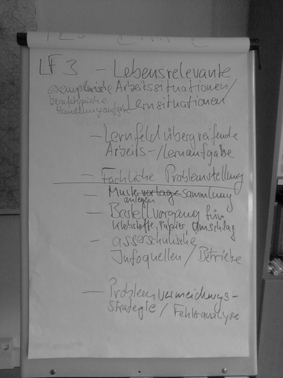 LF 3 – Lebensrelevante,
exemplarische Arbeitssituationen/
Lernsituationen
– Lernfeldübergreifende
Arbeits-/Lernaufgabe
– Fachliche Problemstellung
– Mustervorlage sammlung
anlegen
– Bestellvorgang für
Klebstoffe, Papier, Umschlag
– ausserschulische
Infoquellen / Betriebe
– Problemvermeidungs-
strategie / Fehleranalyse